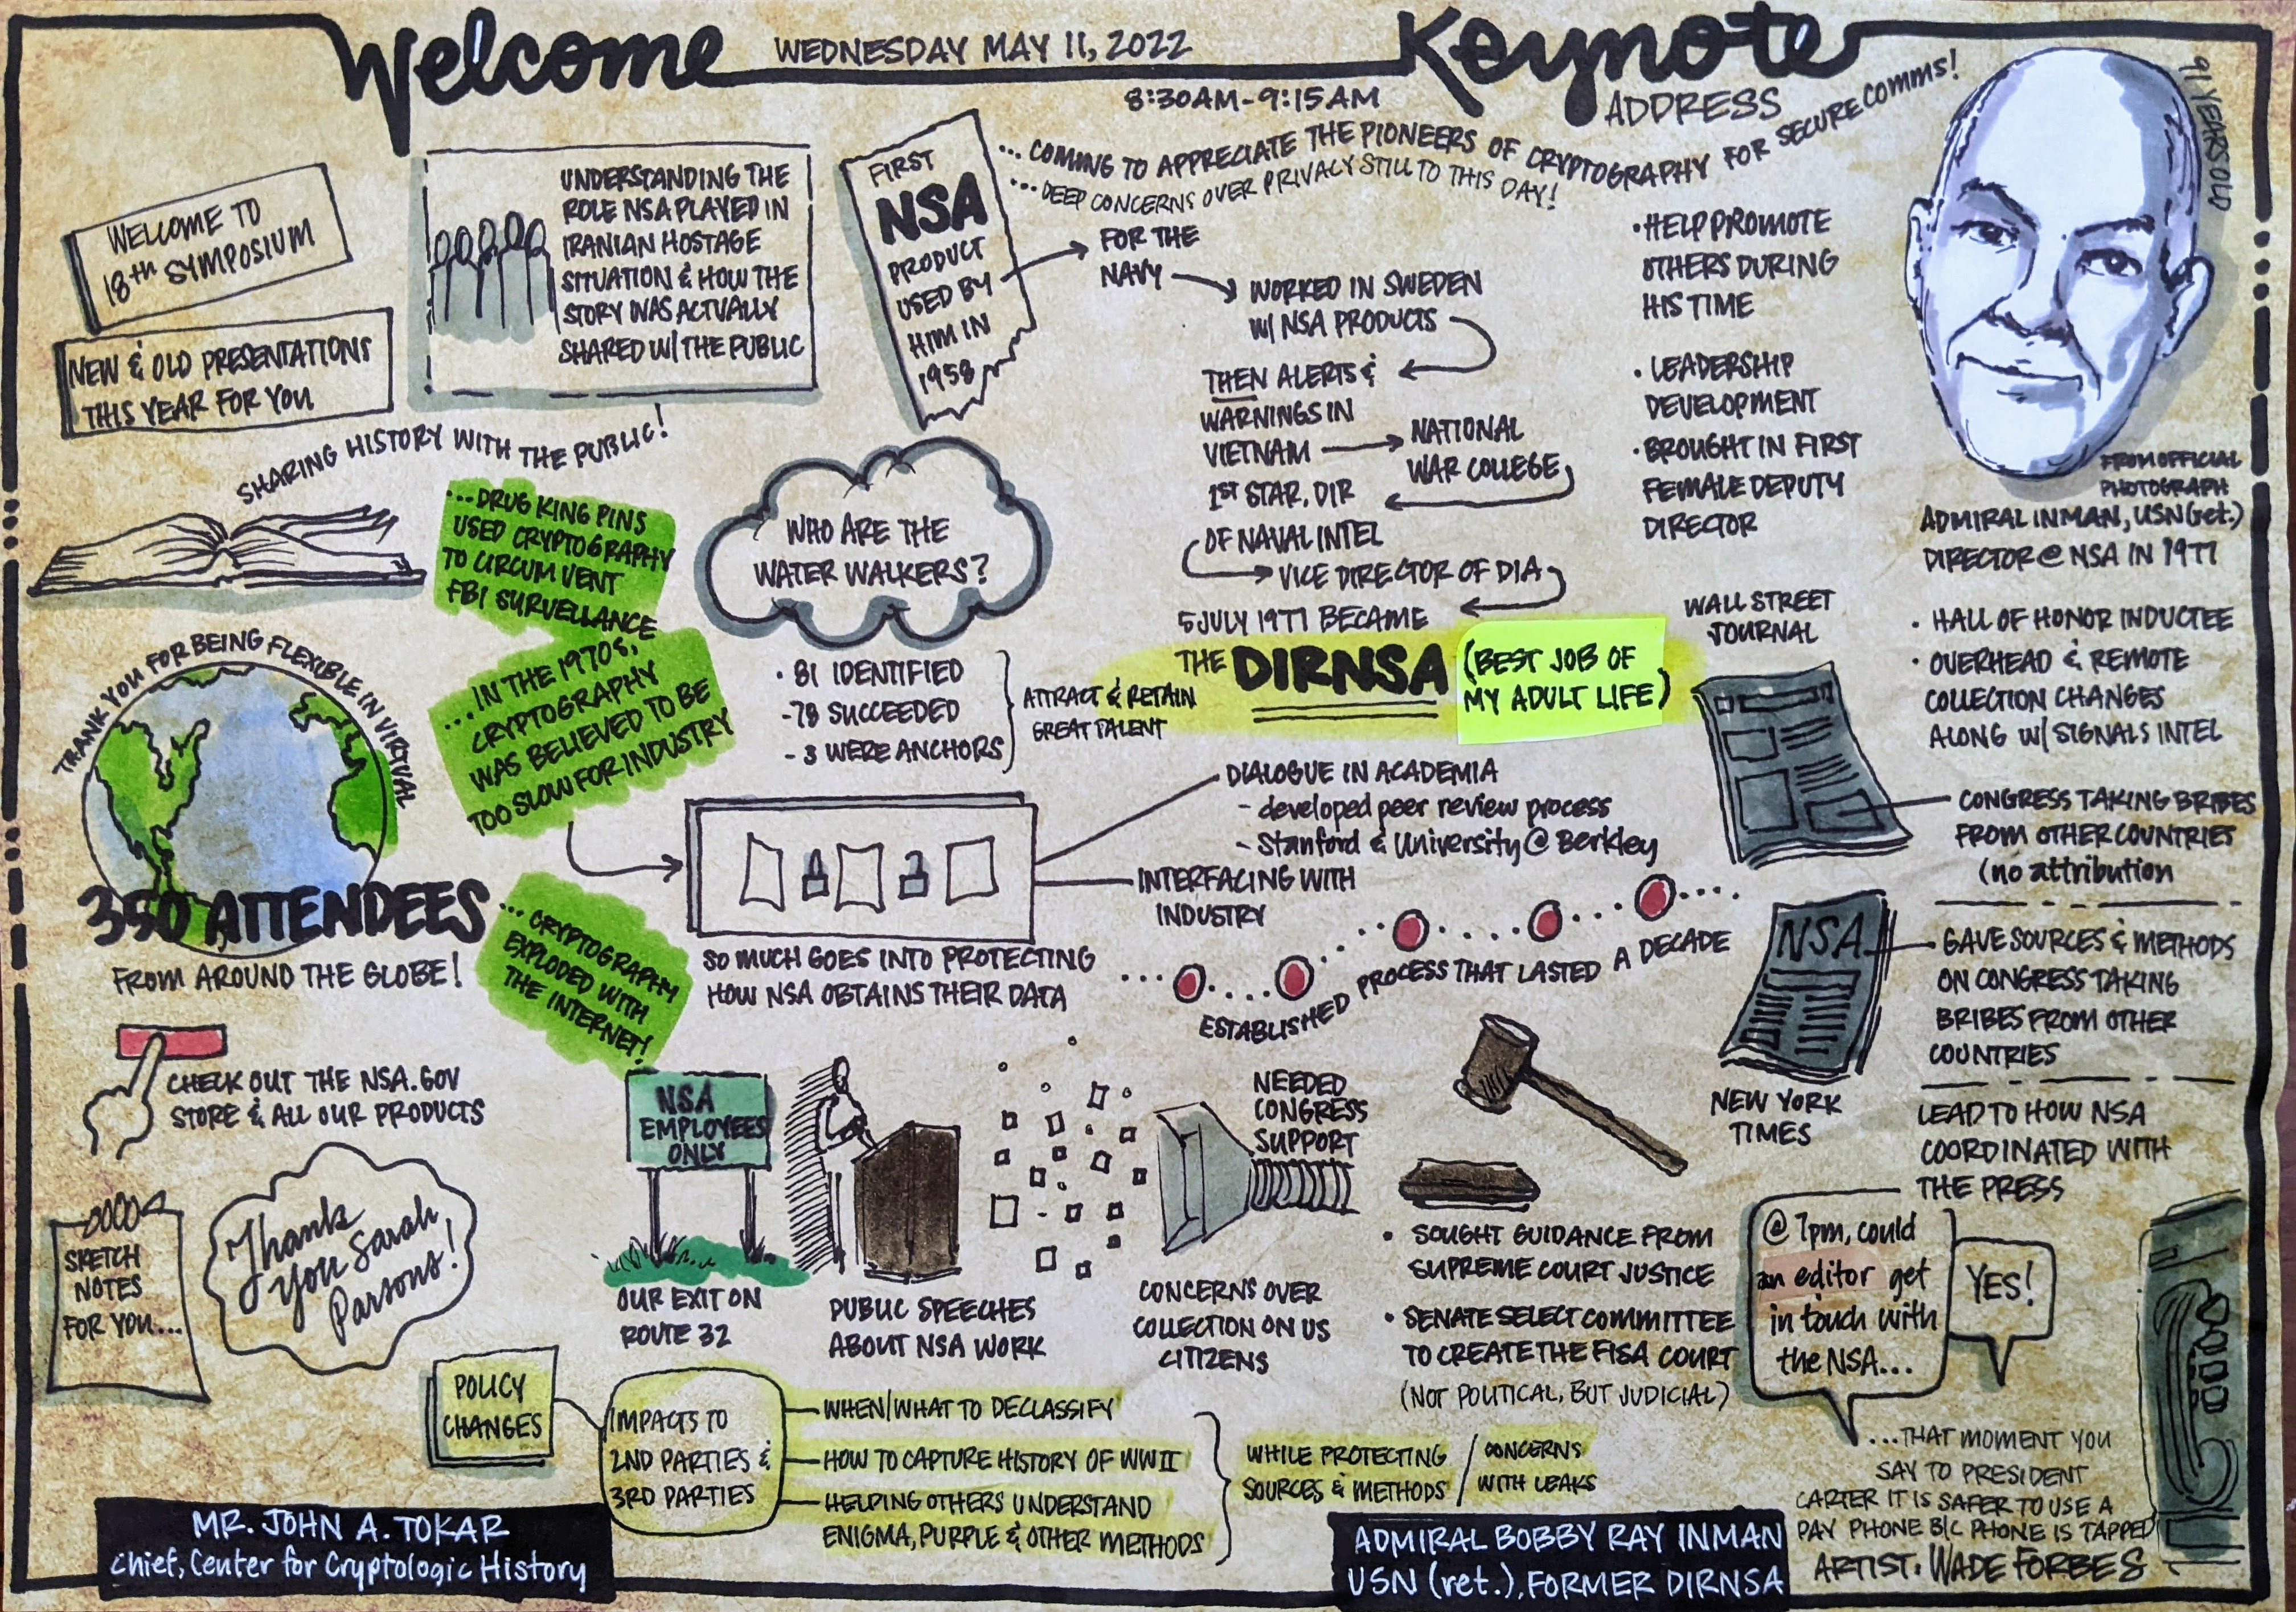 Welcome
WEDNESDAY MAY 11, 2022
Keynote
ADDRESS
8:30AM-9:15AM
WELCOME TO
18TH SYMPOSIUM
NEW & OLD PRESENTATIONS
THIS YEAR FOR YOU
UNDERSTANDING THE
ROLE NSA PLAYED IN
IRANIAN HOSTAGE
SITUATION & HOW THE
STORY WAS ACTUALLY
SHARED W/ THE PUBLIC
SHARING HISTORY WITH THE PUBLIC!
THANK YOU FOR BEING FLEXIBLE IN VIRTUAL
350 ATTENDEES
FROM AROUND THE GLOBE!
CHECK OUT THE NSA.GOV
STORE & ALL OUR PRODUCTS
SKETCH
NOTES
FOR YOU...
Thank
you Sarah
Parsons!
MR. JOHN A. TOKAR
Chief, Center for Cryptologic History
FIRST
NSA
PRODUCT
USED BY
HIM IN
1958
... COMING TO APPRECIATE THE PIONEERS OF CRYPTOGRAPHY FOR SECURE COMMS!
... DEEP CONCERNS OVER PRIVACY STILL TO THIS DAY!
FOR THE
NAVY
WORKED IN SWEDEN
W/ NSA PRODUCTS
THEN ALERTS &
WARNINGS IN
VIETNAM
NATIONAL
WAR COLLEGE
1ST STAR, DIR
OF NAVAL INTEL
VICE DIRECTOR OF DIA
5 JULY 1977 BECAME
THE DIRNSA (BEST JOB OF
MY ADULT LIFE)
• HELP PROMOTE
OTHERS DURING
HIS TIME
• LEADERSHIP
DEVELOPMENT
• BROUGHT IN FIRST
FEMALE DEPUTY
DIRECTOR
91 YEARS OLD
FROM OFFICIAL
PHOTOGRAPH
ADMIRAL INMAN, USN (ret.)
DIRECTOR @ NSA IN 1977
• HALL OF HONOR INDUCTEE
• OVERHEAD & REMOTE
COLLECTION CHANGES
ALONG W/ SIGNALS INTEL
...DRUG KING PINS
USED CRYPTOGRAPHY
TO CIRCUMVENT
FBI SURVELLANCE
... IN THE 1970s,
CRYPTOGRAPHY
WAS BELIEVED TO BE
TOO SLOW FOR INDUSTRY
... CRYPTOGRAPHY
EXPLODED WITH
THE INTERNET!
WHO ARE THE
WATER WALKERS?
• 81 IDENTIFIED
- 78 SUCCEEDED
- 3 WERE ANCHORS
ATTRACT & RETAIN
GREAT TALENT
DIALOGUE IN ACADEMIA
- developed peer review process
- Stanford & University @ Berkley
INTERFACING WITH
INDUSTRY
SO MUCH GOES INTO PROTECTING
HOW NSA OBTAINS THEIR DATA
ESTABLISHED PROCESS THAT LASTED A DECADE
WALL STREET
JOURNAL
CONGRESS TAKING BRIBES
FROM OTHER COUNTRIES
(no attribution
NSA
GAVE SOURCES & METHODS
ON CONGRESS TAKING
BRIBES FROM OTHER
COUNTRIES
NEW YORK
TIMES
LEAD TO HOW NSA
COORDINATED WITH
THE PRESS
NSA
EMPLOYEES
ONLY
OUR EXIT ON
ROUTE 32
PUBLIC SPEECHES
ABOUT NSA WORK
CONCERNS OVER
COLLECTION ON US
CITIZENS
NEEDED
CONGRESS
SUPPORT
• SOUGHT GUIDANCE FROM
SUPREME COURT JUSTICE
• SENATE SELECT COMMITTEE
TO CREATE THE FISA COURT
(NOT POLITICAL, BUT JUDICIAL)
@ 7pm, could
an editor get
in touch with
the NSA...
YES!
...THAT MOMENT YOU
SAY TO PRESIDENT
CARTER IT IS SAFER TO USE A
PAY PHONE B/C PHONE IS TAPPED
POLICY
CHANGES
IMPACTS TO
2ND PARTIES &
3RD PARTIES
WHEN/WHAT TO DECLASSIFY
HOW TO CAPTURE HISTORY OF WWII
HELPING OTHERS UNDERSTAND
ENIGMA, PURPLE & OTHER METHODS
WHILE PROTECTING
SOURCES & METHODS
/ CONCERNS
WITH LEAKS
ADMIRAL BOBBY RAY INMAN
USN (ret.), FORMER DIRNSA
ARTIST: WADE FORBES